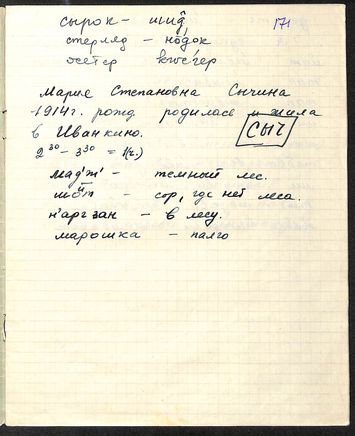 171
сырок - шиӣд
стерляд - нодок
осетёр квегер
Марие Степановна Сычина
1914г. рожд родилась и жила
в Иванкино. СЫЧ
2³⁰ - 3³⁰ = 1(ч.)
мад'ж' - темный лес.
сор, где нет леса.
н'аргзан - в лесу.
марошка - палго